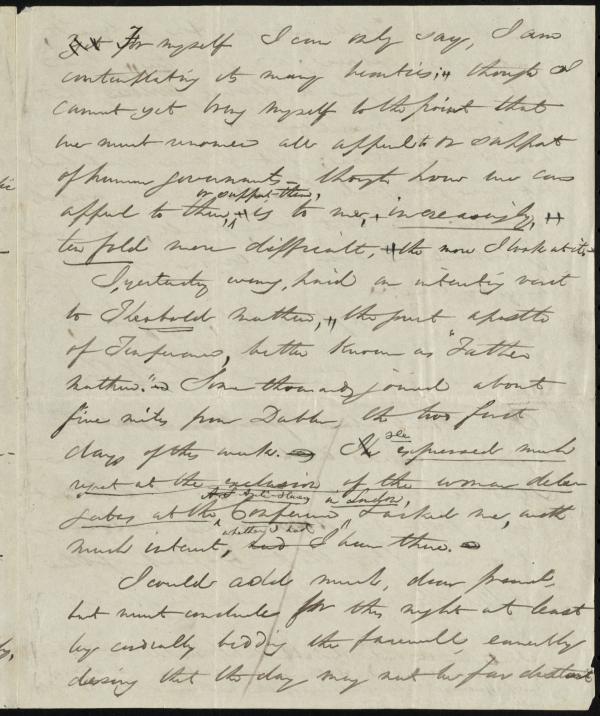 For myself I can only say, I am
contemplating its many beauties; though I
cannot yet bring myself to the point that
we must renounce all appeal to or support
of human governments – though how we can
or support them,
appeal to them, is to me, increasingly,
ten fold more difficult, the more I look at it.
I, yesterday evening, paid an interesting visit
to Theobald Mathew, the great apostle
of Temperance, better known as "Father
Mathew." Some thousands joined about
five miles from Dublin, the two first
days of this week. He expressed much
regret at the exclusion of the woman dele-
Anti-Slavery in London,
gates at the Conference & asked me, with
whether I had
much interest, I been there.
I could add much, dear friend,
but must conclude for this night at least
by cordially bidding thee farewell, earnestly
desiring that the day may not be far distant